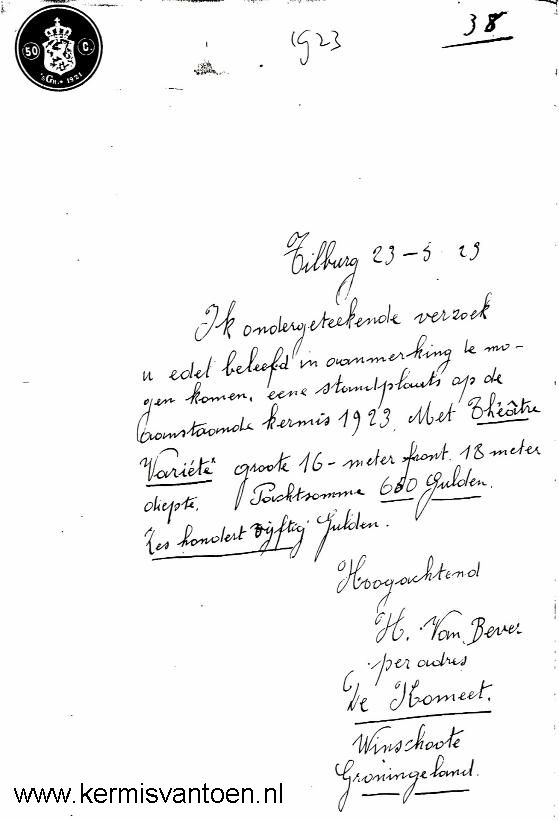 50 C.
'sGr. 1921
1923
38
Tilburg 23-5 23
Ik ondergeteekende verzoek
u edel beleefd in aanmerking te mo-
gen komen, eene standplaats op de
aanstaande kermis 1923. Met Théâtre
Variété groote 16-meter front. 18 meter
diepte. Pachtsomme 650 Gulden.
Zes hondert vijftig Gulden.
Hoogachtend
H. Van Bever
per adres
De Komeet.
Winschoote
Groningeland.
www.kermisvantoen.nl